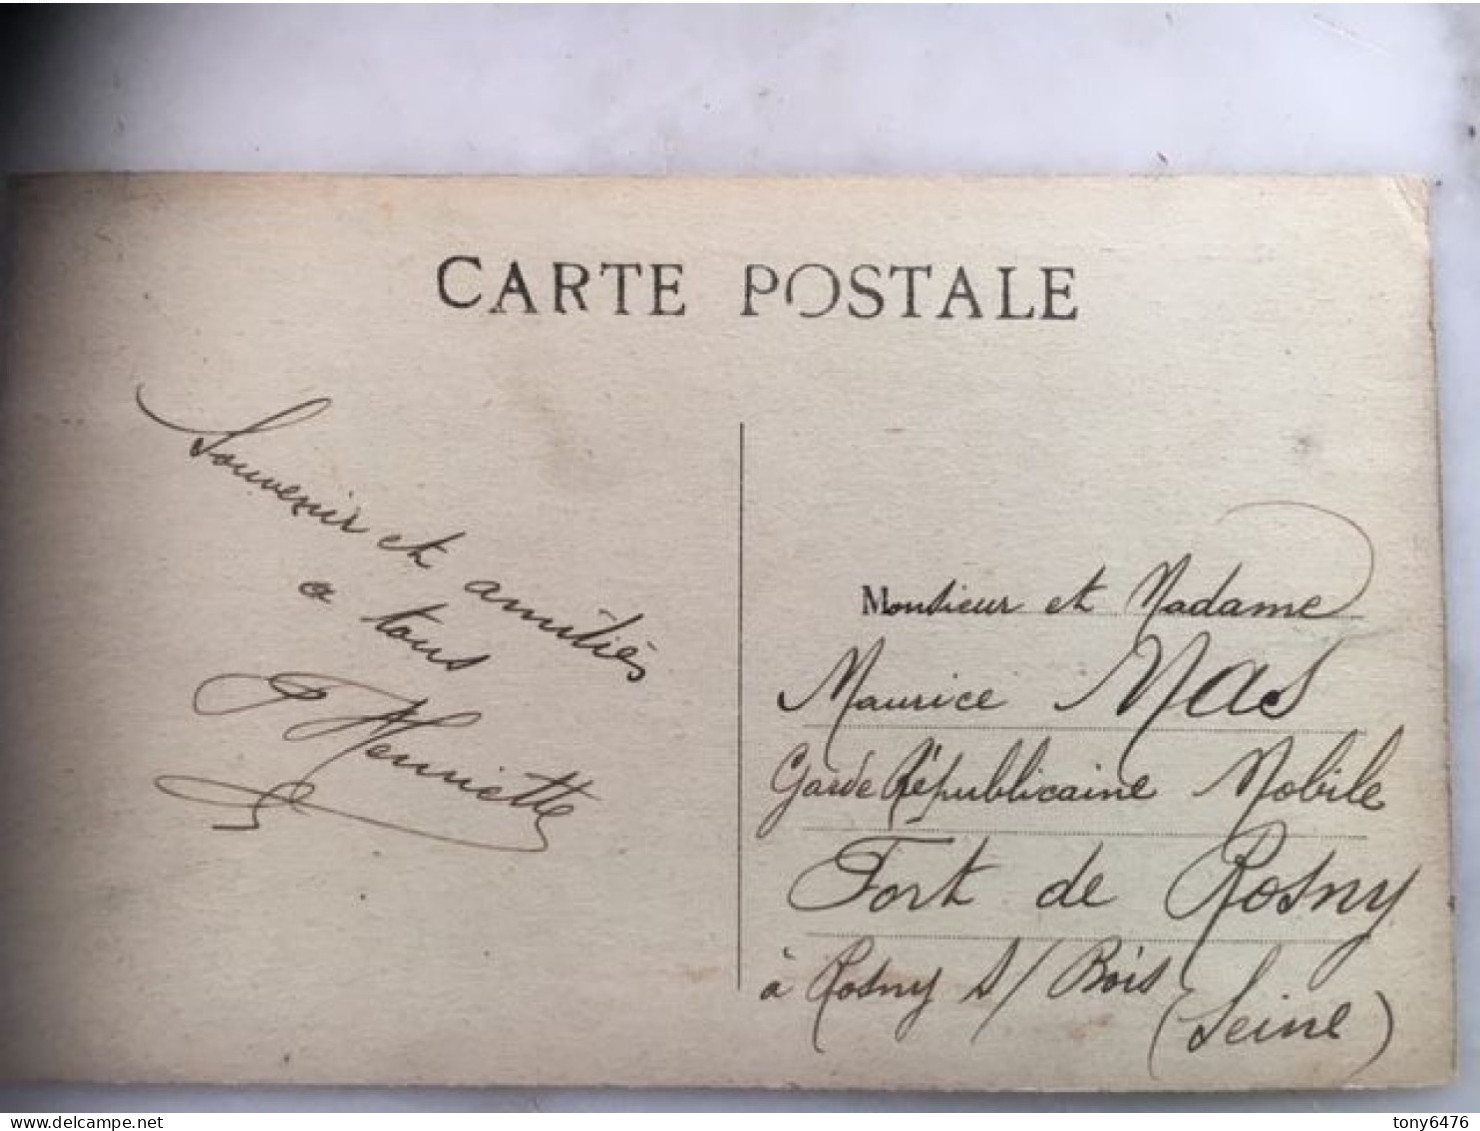 CARTE POSTALE
Souvenir et amitiés
a tous
P Henriette
Monsieur et Madame
Maurice Mas
Garde Républicaine Mobile
Fort de Rosny
à Rosny s/ Bois
(Seine)
www.delcampe.net
tony6476